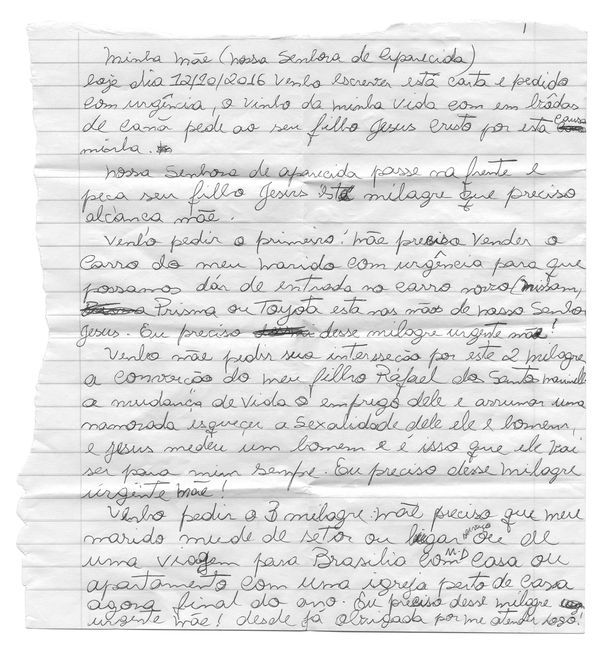 1
Minha mãe (nossa Senhora de Aparecida)
hoje dia 12/10/2016 venho escrever está carta e pedido
com urgência, o vinho da minha vida com em bôdas
de canã pede ao seu filho Jesus Cristo por esta causa
minha.
nossa Senhora de aparecida passe na frente e
peça seu fillo Jesus este milagre que preciso
alcança mãe.
Venho pedir o primeiro! Mãe preciso vender o
Carro do meu marido com urgência para que
possamos dár de entrada no carro novo (Nissan,
Prisma ou Toyota esta nas mãos de nosso Senho
Jesus. Eu preciso desse milagre urgente mãe!
Venho mãe pedir sua intersseção por este 2 milagre
a converção do meu filho Rafael dos Santo
a mudança de vida o emprigo dele e arrumar uma
namorada isqueçer a Sexalidade dele ele e homem,
e Jesus medeu um homem e é isso que ele vai
ser para mim sempre. Eu preciso desse milagre
urgente mãe!
Venho pedir o 3 milagre: mãe preciso que meu
marido mude de setor ou lugar serviço ou de
uma viagem para Brasilia com M.D casa ou
apartamento com uma igreja perto de cassa
agora final do ano. Eu preciso desse milagre
urgente mãe! desde já obrigada por me atender logo!